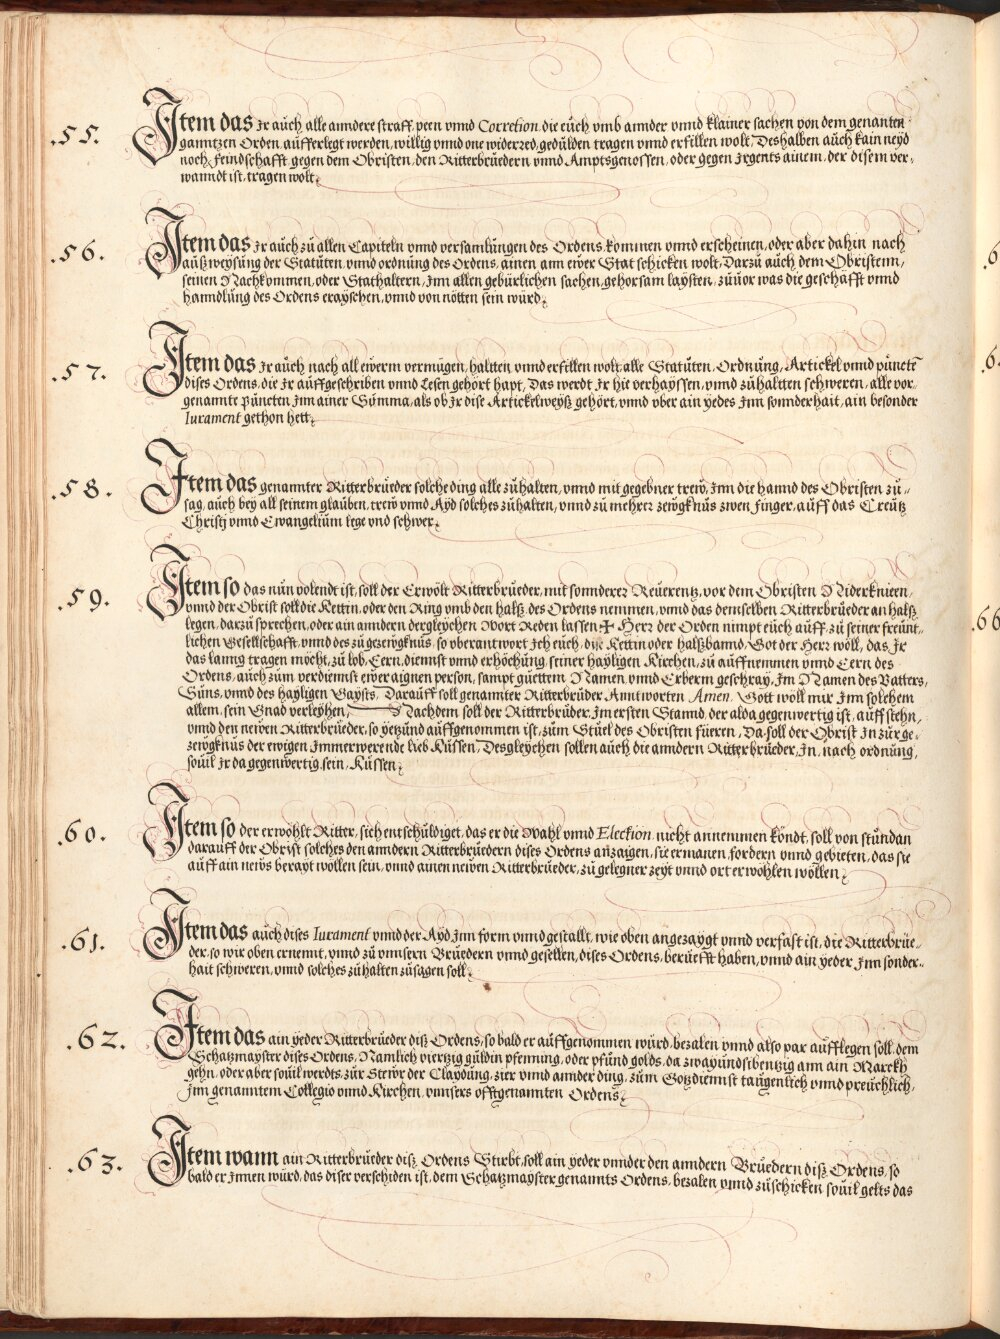 .55. Item das Ir auch alle anndere straff, peen vnnd Corretion, die euch vmb annder vnnd klainer sachen von dem genanten
ganntzen Orden aufferlegt werden, willig vnnd one widerred, gedulden tragen vnnd erfüllen wolt, Deshalben auch kain neyd
noch feindschafft gegen dem Obristen, den Ritterbrüedern vnnd Amptsgenossen, oder gegen Irgents ainem, der disem ver-
wanndt ist, tragen wolt.
.56. Item das Ir auch zu allen Capiteln vnnd versamlungen des Ordens kommen vnnd erscheinen, oder aber dahin nach
außweysung der Statuten, vnnd ordnung des Ordens, ainen ann ewer Stat schicken wolt, Darzu auch dem Obristenn,
seinen Nachkommen, oder Stathaltern, Inn allen gebürlichen sachen, gehorsam laysten, zuuor was die geschäfft vnnd
hanndlung des Ordens erayschen, vnnd von nötten sein würd.
.57. Item das Ir auch nach all ewerm vermügen, haltten vnnd erfüllen wolt, alle Statuten, Ordnung, Artickel vnnd puncte
dises Ordens, die Ir auffgeschriben vnnd Lesen gehört hapt, Das werdt Ir hie verhayssen, vnnd zuhaltten schweren, alle vor
genannte puncten Inn ainer Summa, als ob Ir dise Artickelweyß gehört, vnnd vber ain yedes Inn sonnderhait, ain besonder
Iurament gethon hett.
.58. Item das genannter Ritterbrüeder solche ding alle zuhalten, vnnd mit gegebner trew, Inn die hannd des Obristen zu-
sag, auch bey all seinem glauben, trew vnnd Ayd solches zuhalten, vnnd zu mehrer zewgknus zwen finger, auff das Creutz
Christj vnnd Ewangelium lege vnd schwer.
.59. Item so das nun volendt ist, soll der Erwölt Ritterbrüeder, mit sonnderer Reuerentz, vor dem Obristen Niderknieen,
vnnd der Obrist soll die Kettin, oder den Ring vmb den halß, des Ordens nemmen, vnnd das demselben Ritterbrüeder an halß
legen, darzu sprechen, oder ain anndern dergleychen Wort Reden lassen ✠ Herr der Orden nimpt euch auff, zu seiner freünt-
lichen Gesellschafft, vnnd des zu gezewgknus, so vberantwort Ich euch, dise Kettin oder halßbannd, Got der Herr wöll, das Ir
das lanng tragen möcht, zu lob, Eern, diennst vnnd erhöchung, seiner hayligen Kirchen, zu auffnemmen vnnd Eern des
Ordens, auch zum verdiennst ewer aignen person, sampt guettem Namen, vnnd Erberm geschray, Im Namen des Vatters,
Suns, vnnd des hayligen Gaysts, Darauff soll genannter Ritterbrüder Anntworten Amen. Gott wöll mir Inn solchem
allem, sein Gnad verleyhen, Nachdem soll der Ritterbrüder, Im ersten Stannd, der alda gegenwertig ist, auff stehn,
vnnd den newen Ritterbrüeder, so yetzund auffgenommen ist, zum Stuel des Obristen füeren, Da soll der Obrist In zur ge-
zewgknus der ewigen Immerwerende lieb Küssen, Desgleychen sollen auch die anndern Ritterbrüeder, In, nach ordnung,
souil Ir da gegenwertig sein, Küssen.
.60. Item so der erwöhlt Ritter, sich entschuldiget, das er die Wahl vnnd Eleckion, nicht annemmen köndt, soll von stundan
darauff der Obrist solches den anndern Ritterbrüedern dises Ordens anzaigen, sie ermanen, fordern vnnd gebieten, das sie
auff ain news berayt wöllen sein, vnnd ainen newen Ritterbrüeder, zu gelegner zeyt vnnd ort erwöhlen wöllen.
.61. Item das auch dises Iurament vnnd der Ayd Inn form vnnd gestallt, wie oben angezaygt vnnd verfast ist, die Ritterbrüe-
der, so wir oben ernennt, vnnd zu vnnsern Brüedern vnnd gesellen, dises Ordens, berüefft haben, vnnd ain yeder Inn sonder-
hait schweren, vnnd solches zuhalten zusagen soll.
.62. Item das ain yeder Ritterbrüeder diß Ordens, so bald er auffgenommen würd, bezalen vnnd also par aufflegen soll, dem
Schatzmayster dises Ordens, Namlich viertzig guldin pfenning, oder pfund golds, da zwayundsibentzig ann ain Marckh
gehn, oder aber souil werdts, zur Stewr der Claydung, zier vnnd annder ding, zum Gotzdiennst taugenlich vnnd preuchlich,
Inn genanntem Collegio vnnd Kirchen, vnnsers offtgenannten Ordens.
.63. Item wann ain Ritterbrüeder diß Ordens Stirbt, soll ain yeder vnnder den anndern Brüedern diß Ordens, so
bald er Innen würd, das diser verschiden ist, dem Schatzmayster genannts Ordens, bezalen vnnd zuschicken souil gelts das
.6
.6
.66